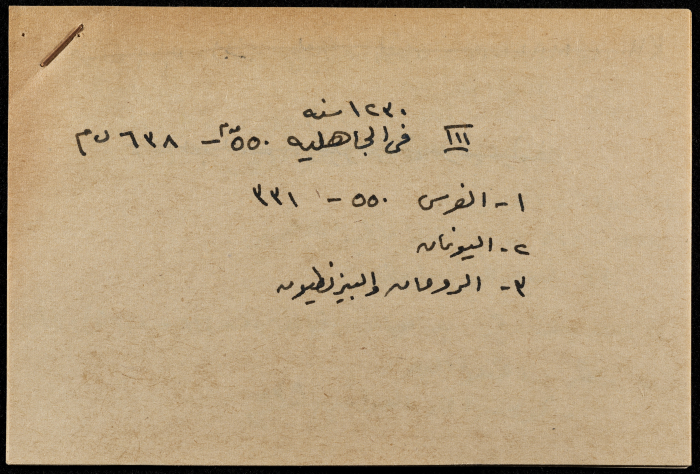 ١٢٣٠ سنه
III في الجاهليه ٥٥٠ ق م – ٦٣٨ ب م
١- الفرس ٥٥٠ – ٣٣١
٢- اليونان
٣- الرومان والبيزنطيون